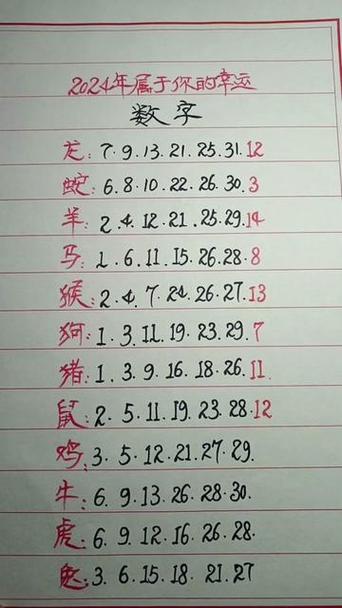 2024年属于你的幸运
数字
龙:7.9.13.21.25.31.12
蛇:6.8.10.22.26.30.3
羊:2.4.12.21.25.29.14
马:1.6.11.15.26.28.8
猴:2.4.7.24.26.27.13
狗:1.3.11.19.23.29.7
猪:1.3.9.16.18.26.11.
鼠:2.5.11.19.23.28.12
鸡:3.5.12.21.27.29.
牛:6.9.13.26.28.30.
虎:6.9.12.16.26.28.
兔:3.6.15.18.21.27